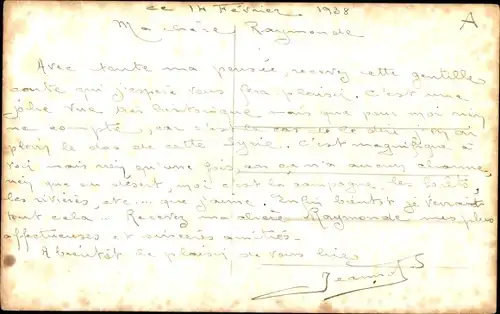 ce 14 Février 1938
A
Ma chère Raymonde
Avec toute ma pensée, recevez cette gentille
carte qui j'espère vous fera plaisir. C'est une
jolie vue très historique mais que pour moi rien
ne compte, car c'est le cas de le dire, j'en ai
plein le dos de cette Syrie. C'est magnifique à
voir mais rien qu'une fois, on
rien que du désert, moi c'est la campagne, les forêts,
les rivières, etc.... que j'aime. Enfin bientôt je verrais
tout cela.. Recevez ma chère Raymonde mes plus
affectueuses et sincères amitiés.
A bientôt le plaisir de vous lire